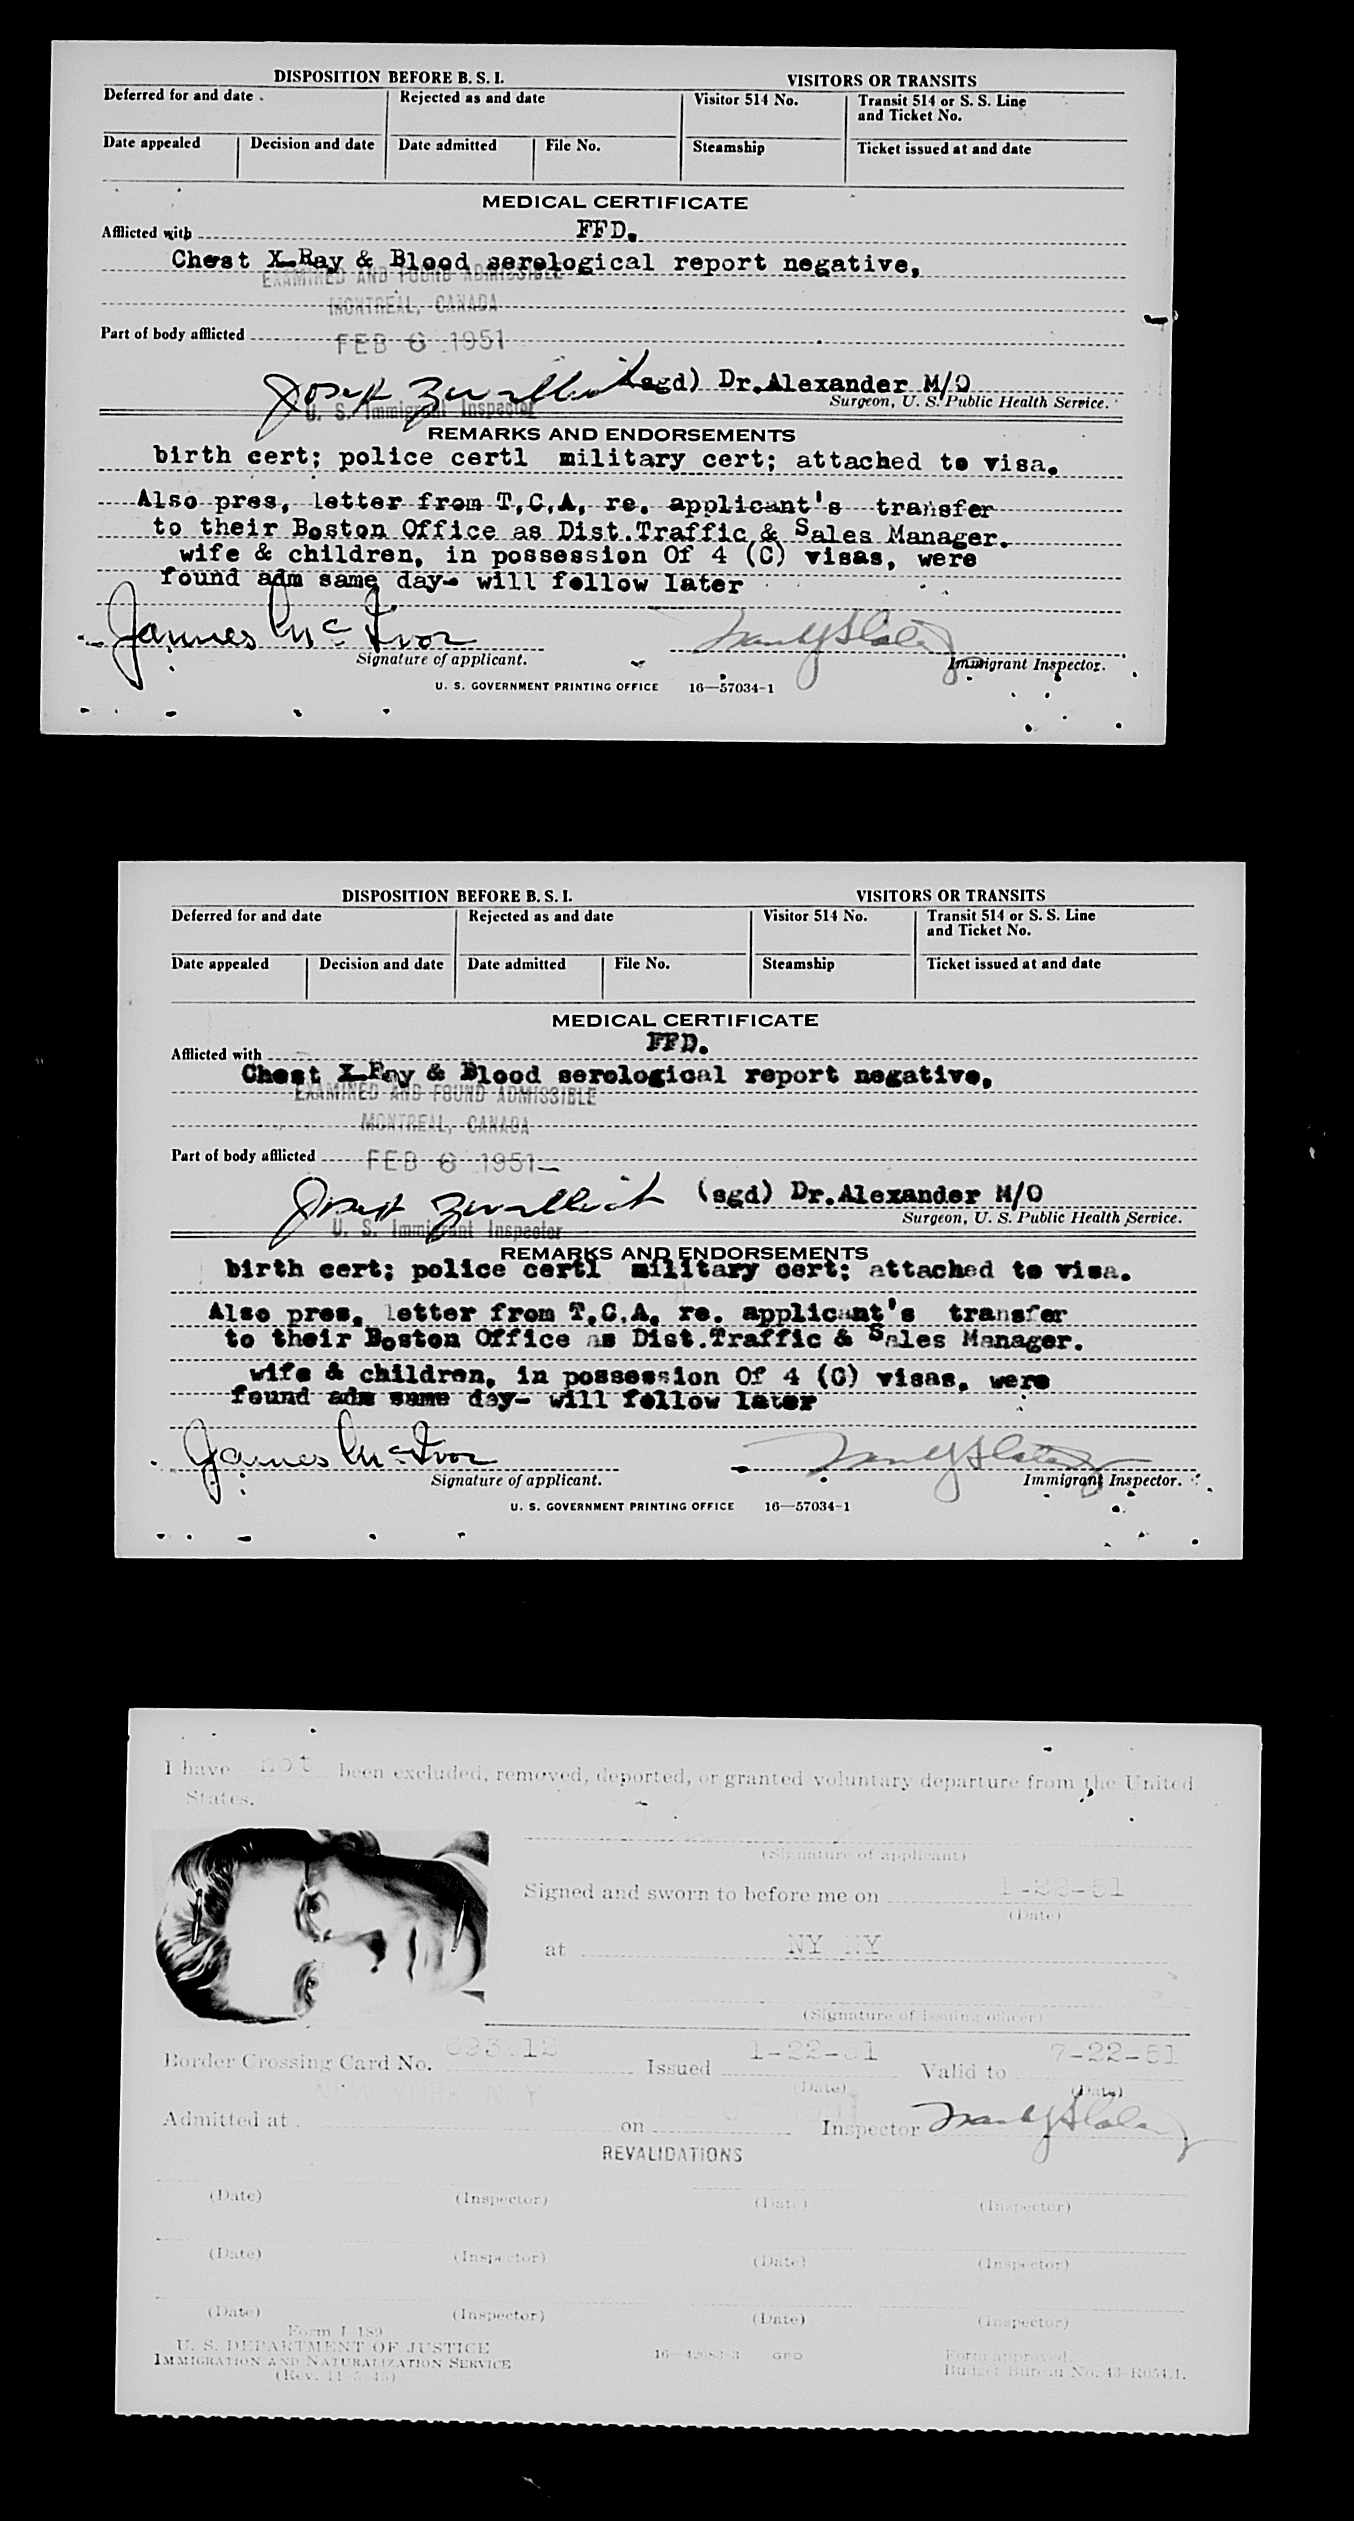 DISPOSITION BEFORE B. S. I. VISITORS OR TRANSITS
Deferred for and date Rejected as and date Visitor 514 No. Transit 514 or S. S. Line
and Ticket No.
Date appealed Decision and date Date admitted File No. Steamship Ticket issued at and date
MEDICAL CERTIFICATE
Afflicted with FFD.
Chest X-Ray & Blood serological report negative,
EXAMINED AND FOUND ADMISSIBLE
MONTREAL, CANADA
Part of body afflicted FEB 6 1951
Josep (sgd) Dr.Alexander M/O
U. S. Immigrant Inspector Surgeon, U. S. Public Health Service.
REMARKS AND ENDORSEMENTS
birth cert; police certl military cert; attached to visa.
Also pres, letter from T,C,A, re. applicant's transfer
to their Boston Office as Dist.Traffic & Sales Manager.
wife & children, in possession Of 4 (C) visas, were
found adm same day- will follow later
James McIvor
Signature of applicant. Immigrant Inspector.
U. S. GOVERNMENT PRINTING OFFICE 16—57034-1
DISPOSITION BEFORE B. S. I. VISITORS OR TRANSITS
Deferred for and date Rejected as and date Visitor 514 No. Transit 514 or S. S. Line
and Ticket No.
Date appealed Decision and date Date admitted File No. Steamship Ticket issued at and date
MEDICAL CERTIFICATE
FFD.
Afflicted with
Chest X-Ray & Blood serological report negative,
EXAMINED AND FOUND ADMISSIBLE
MONTREAL, CANADA
Part of body afflicted FEB 6 1951
Josep (sgd) Dr.Alexander M/O
U. S. Immigrant Inspector Surgeon, U. S. Public Health Service.
REMARKS AND ENDORSEMENTS
birth cert; police certl military cert; attached to visa.
Also pres, letter from T,C,A, re. applicant's transfer
to their Boston Office as Dist.Traffic & Sales Manager.
wife & children, in possession Of 4 (C) visas, were
found adm same day- will follow later
James McIvor
Signature of applicant. Immigrant Inspector.
U. S. GOVERNMENT PRINTING OFFICE 16—57034-1
I have not been excluded, removed, deported, or granted voluntary departure from the United
States.
(Signature of applicant)
Signed and sworn to before me on 1-22-51
(Date)
at NY NY
(Signature of issuing officer)
Border Crossing Card No. Issued 1-22-51 Valid to 7-22-51
(Date) (Date)
NEW YORK N Y
Admitted at on Inspector
REVALIDATIONS
(Date) (Inspector) (Date) (Inspector)
(Date) (Inspector) (Date) (Inspector)
(Date) (Inspector) (Date) (Inspector)
Form I-189
U. S. DEPARTMENT OF JUSTICE
IMMIGRATION AND NATURALIZATION SERVICE GPO Form approved.
(Rev. 11-5-45) Budget Bureau No. 43-R054.1.